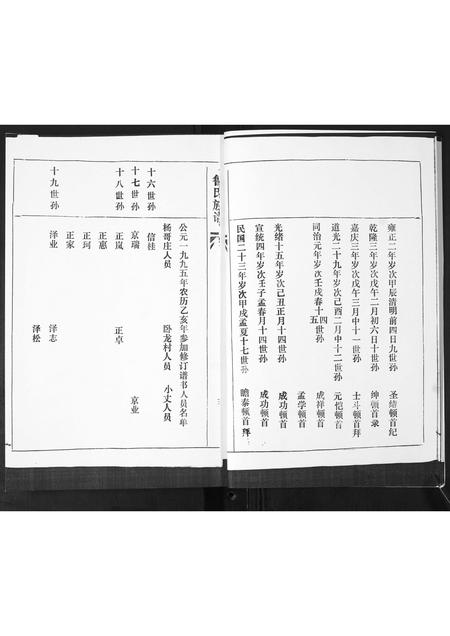 雍正二年岁次甲辰清明前四日九世孙 圣绪顿首纪
乾隆三年岁次戊午二月初六日十世孙 绅顿首录
嘉庆三年岁次戊午三月中十一世孙 士斗顿首拜
道光二十九年岁次己酉二月中十二世孙 元恺顿首
同治元年岁次壬戌春十四五世孙 成祥顿首
孟学顿首
光绪十五年岁次己丑正月十四世孙 成功顿首
宣统四年岁次壬子孟春月十四世孙 成功顿首
民国二十三年岁次甲戌孟夏十七世孙 瞻泰顿首拜
鲁氏族谱
公元一九九五年农历乙亥年参加修订谱书人员名单
杨哥庄人员 卧龙村人员 小丈人员
十六世孙 信佳
十七世孙 京瑞 京业
十八世孙 正岚 正卓
正惠
正珂
正家
十九世孙 泽业 泽志
泽松